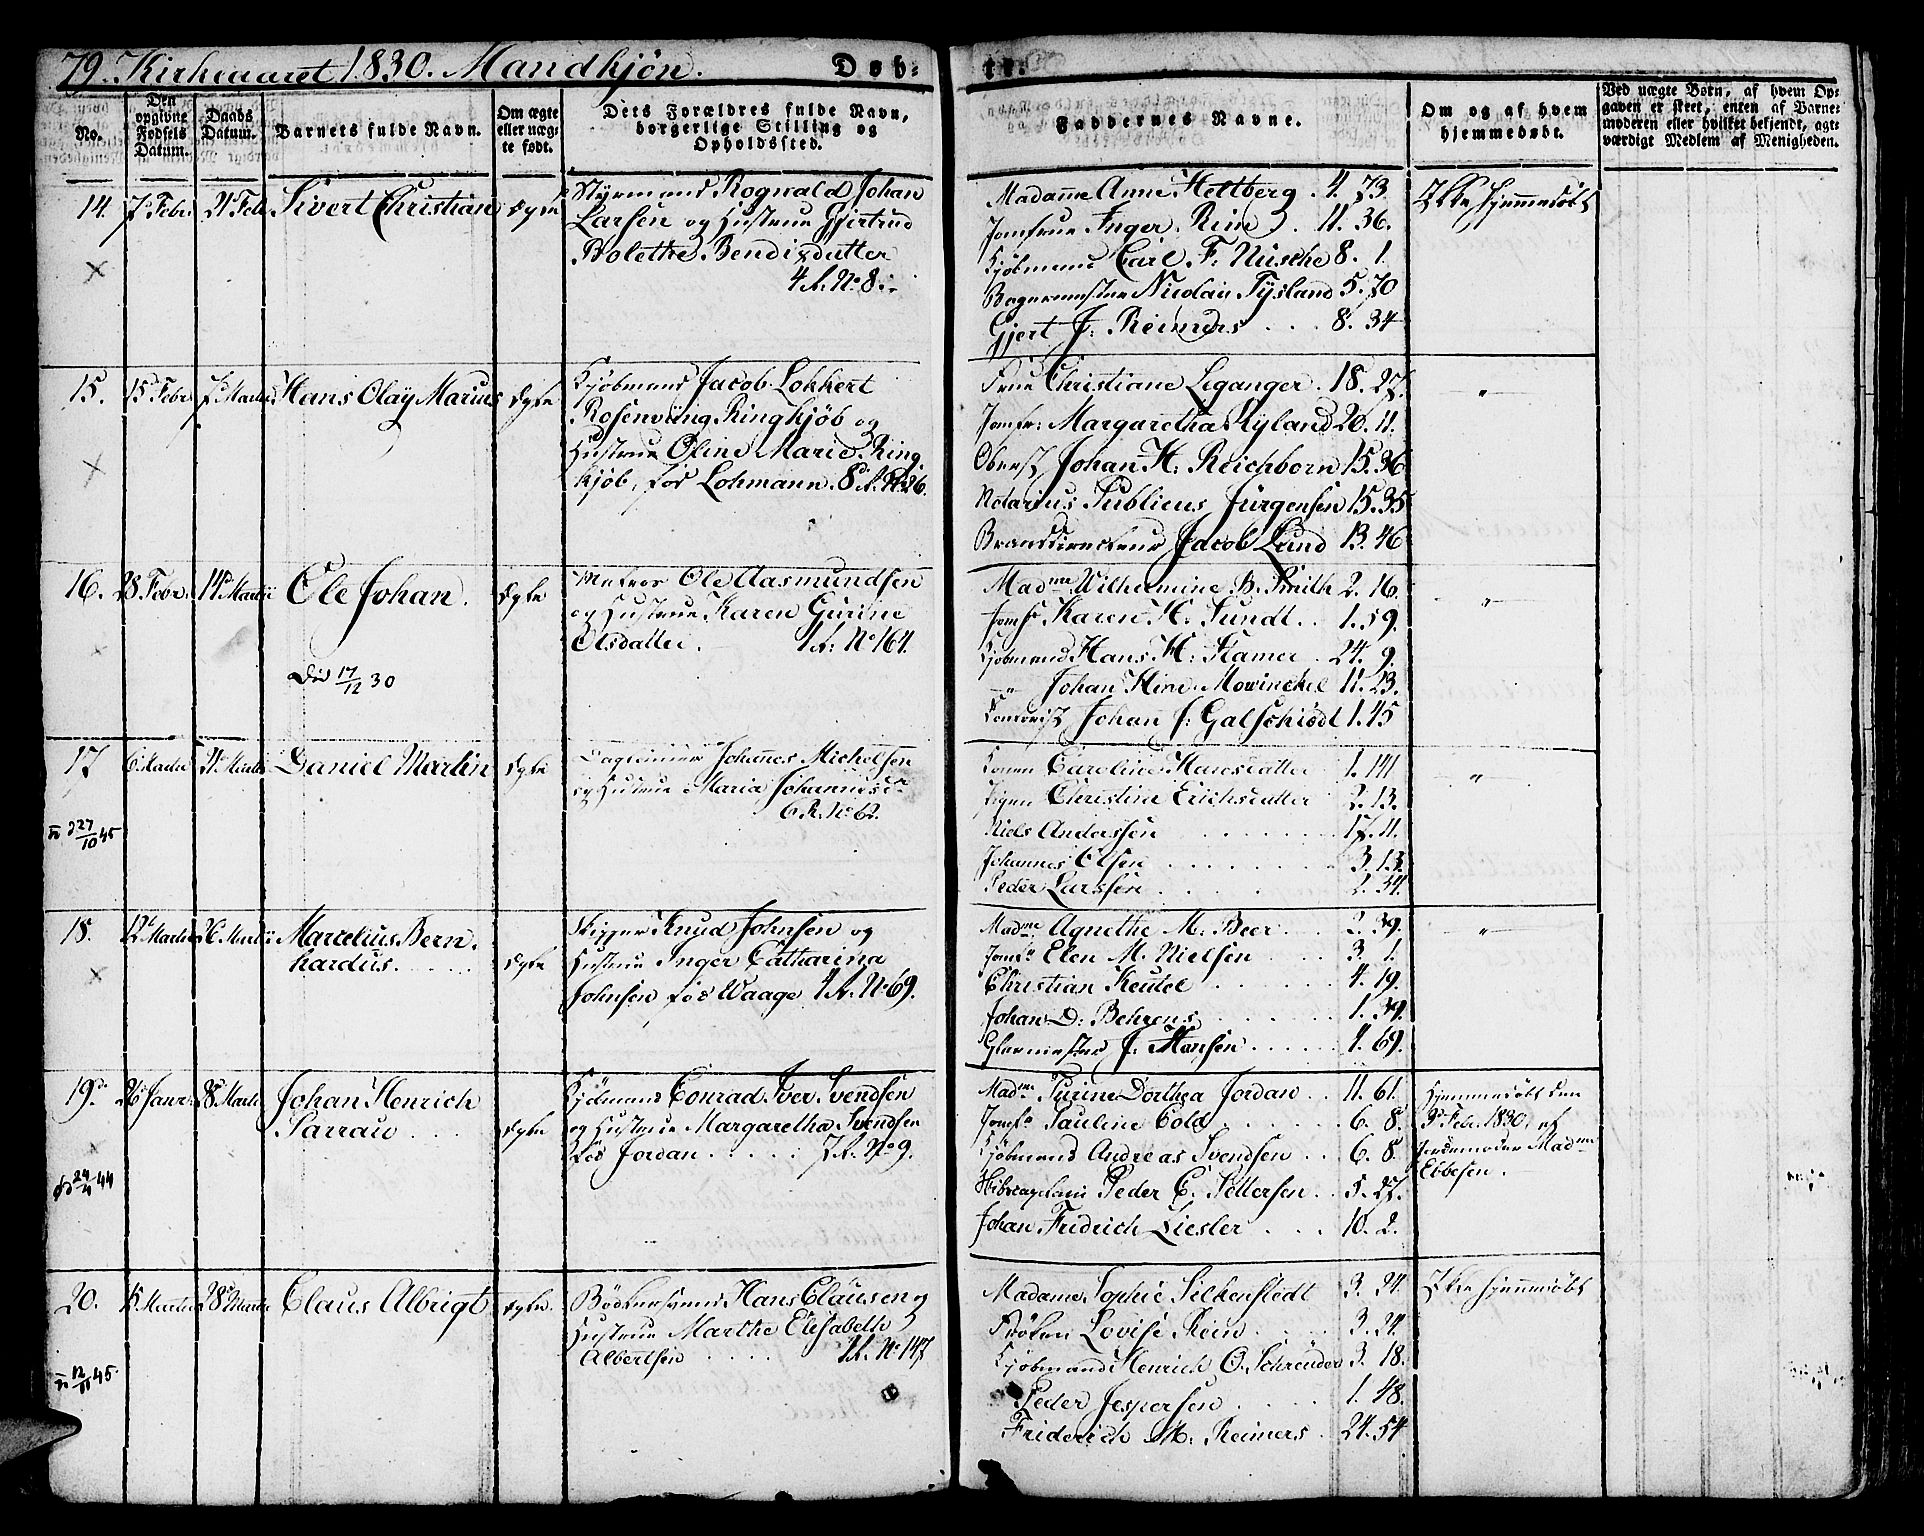 79. Kirkeaaret 1830. Mandkjön. Döb= te.
No.
Den opgivne Fødsels Datum.
Daabs Datum.
Barnets fulde Navn.
Om ægte eller uæg= te født.
Dets Forældres fulde Navn, borgerlige Stilling og Opholdssted.
Faddernes Navne.
Om og af hvem hjemmedøbt.
Ved uægte Børn, af hvem Op= gaven er skeet, enten af Barne= moderen eller hvilket bekjendt, agt= værdigt Medlem af Menigheden.
14. 7 Febr. 21 Feb Sivert Christian Ægte
Styrmand Rognald Johan
Larsen og Hustrue Gjertrud
Bolethe Bendixdatter
4 R. No 8.
Madame Anne Heltberg . 4. 73
Jomfrue Inger Rein . 11. 36.
Kjöbmand Carl F: Nüsche 8. 1
Bagermester Nicolai Tysland 5. 70
Gjert J. Reimers . . . 8. 34
Ikke hjemmedöbt
15. 15 Febr. 7 Martii Hans Olay Marius Ægte
Kjöbmand Jacob Lokkert
Rosenviing Ringkjöb og
Hustrue Oline Marie Ring
kjöb, föd Lohmann. 8 R. No 26.
Frue Christiane Leganger . 18. 27.
Jomfr: Margaretha Nyland 20. 11.
Oberst Johan H: Reichborn 15. 36
Notarius Publicus Jürgensen 15. 35
Branddirecteur Jacob Lund 13. 46
"
16. 28 Febr. 14 Martii Ole Johan. Ægte
Matros Ole Aasmundsen
og Hustrue Karen Gurine
Olsdatter. 1 R: No 164.
Död 17/12 30
Madme Wilhelmine B. Smith 2. 16.
Jomfr Karen H. Sundt . . 1. 59.
Kjöbmand Hans H: Flamer . 24. 9.
" Johan Hinr. Mowinckel 11. 23.
Johan J: Galschiödt 1. 45
"
17 6 Martii 21 Martii Daniel Martin Ægte
Dagleiener Johannes Michelsen
og Hustrue Maria Johannesd.
6 R. No 62.
27/10 45
Konen Caroline Hansdatter 1. 141
Pigen Christine Erichsdatter 2. 13.
Niels Anderssen . . . 17. 11.
Johannes Olsen . . . 3. 13.
Peder Larssen . . . 2. 34.
"
18. 12 Martii 26 Martii Marcelius Bern
hardus. . . . Ægte
Skipper Knud Johnsen og
Hustrue Inger Catharina
Johnsen föd Waage 1 R. No 69.
Madme Agnethe M. Beer . . 2. 39.
Jomfr Elen M. Nielsen . . . 3. 1.
Christian Keutel . . . 4. 19.
Johan D: Behrens . . . 1. 39.
Glarmester J. Hansen . . . 1. 69.
"
19. 26 Janr. 28 Martii Johan Henrich
Sarrau . . . Ægte
Kjöbmand Conrad Iver Svendsen
og Hustrue Margaretha Svendsen
föd Jordan . . . 7 R. No 9.
24/4 44
Madme Turine Dorthea Jordan . . 11. 61.
Jomfr Pauline Cold . . . 6. 8.
Kjöbmand Andreas Svendsen . . 6. 8.
Peder C. Pettersen . . 5. 27.
Johan Fridrich Liesler . . . 10. 2.
Hjemmedöbt den
3 Febr. 1830 af
Jordemoder Madme
Ebbesen.
20. 15 Martii 28 Martii Claus Albrigt Ægte.
Bödkersvend Hans Clausen og
Hustrue Marthe Elisabeth
Albertsen . . . 1 R. No 147
12/11 45.
Madame Sophie Silkenstedt 3. 24.
Fröken Lovise Rein . . . 3. 24.
Kjöbmand Henrich O. Schreuder 3. 18.
Peder Jespersen . . . 1. 48.
Friderich M: Reimers . 24. 54
Ikke hjemmedöbt